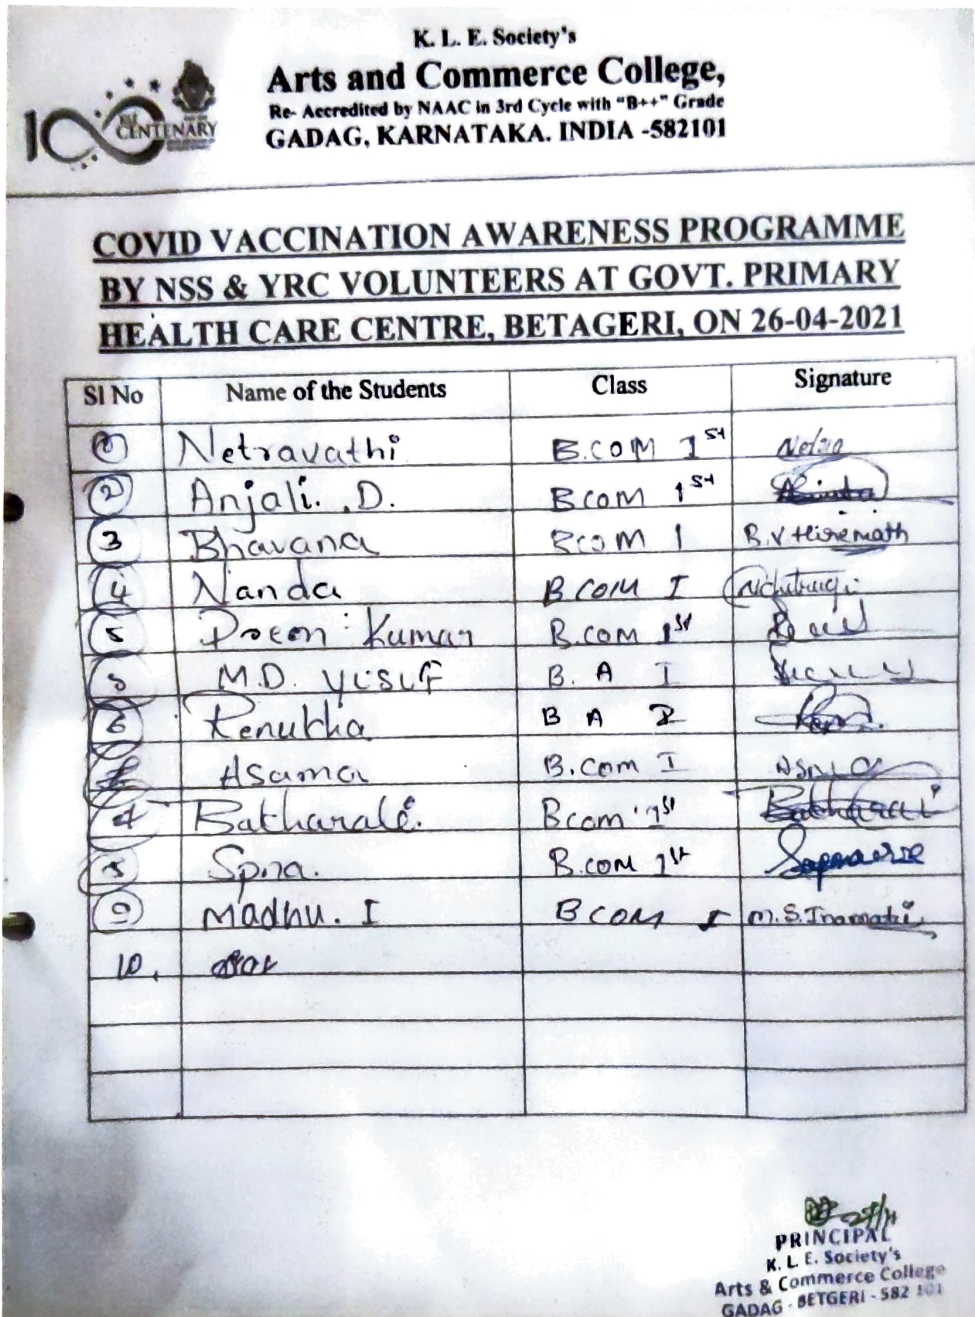 K. L. E. Society's
Arts and Commerce College,
Re- Accredited by NAAC in 3rd Cycle with "B++" Grade
GADAG, KARNATAKA. INDIA -582101
CENTENARY
COVID VACCINATION AWARENESS PROGRAMME
BY NSS & YRC VOLUNTEERS AT GOVT. PRIMARY
HEALTH CARE CENTRE, BETAGERI, ON 26-04-2021
Sl No Name of the Students Class Signature
Netravathi B.COM 1st
2 Anjali. D. BCOM 1st
3 Bhavana BCOM 1 B.V Hiremath
4 Nanda BCOM I
5 Kumar B.COM 1st
M.D. YUSUF B. A I
6 Renukha B A
Asama B.Com I
Batharali. Bcom 1st
Spna. B.COM 1st
9 Madhu. I BCOM I M.S.Inamati
10.
PRINCIPAL
K. L. E. Society's
Arts & Commerce College
GADAG - BETGERI - 582 101